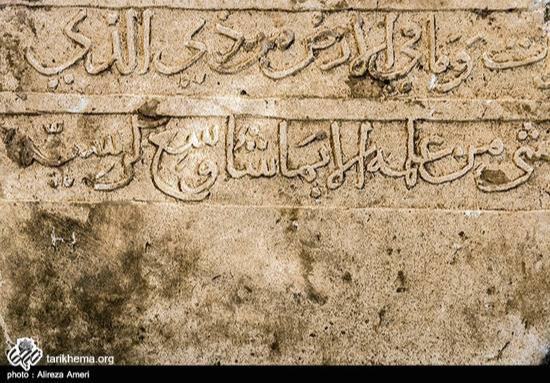 ت وما فی الارض من ذی الذی
شی من علمه الا بما شا وسع کرسیه
tarikhema.org
photo : Alireza Ameri